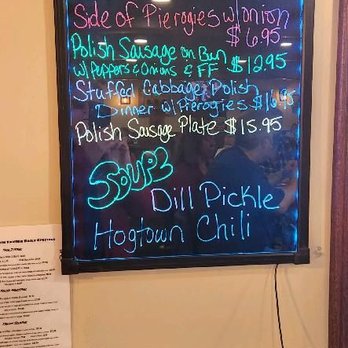 Side of Pierogies w/onion
$6.95
Polish Sausage on Bun
w/Peppers & Onions & FF $12.95
Stuffed Cabbage Polish
Dinner w/Pierogies $16.95
Polish Sausage Plate $15.95
SOUPS
Dill Pickle
Hogtown Chili